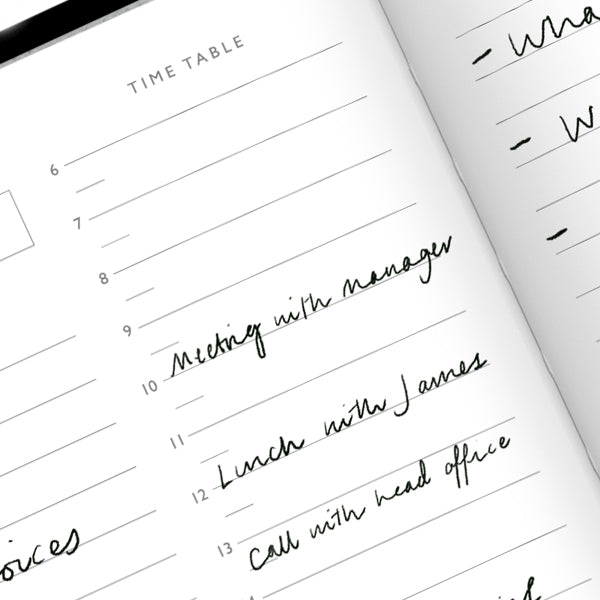 TIME TABLE
6
7
8
9
10 Meeting with manager
11
12 Lunch with James
13 Call with head office
- Wha
- W
-
oices